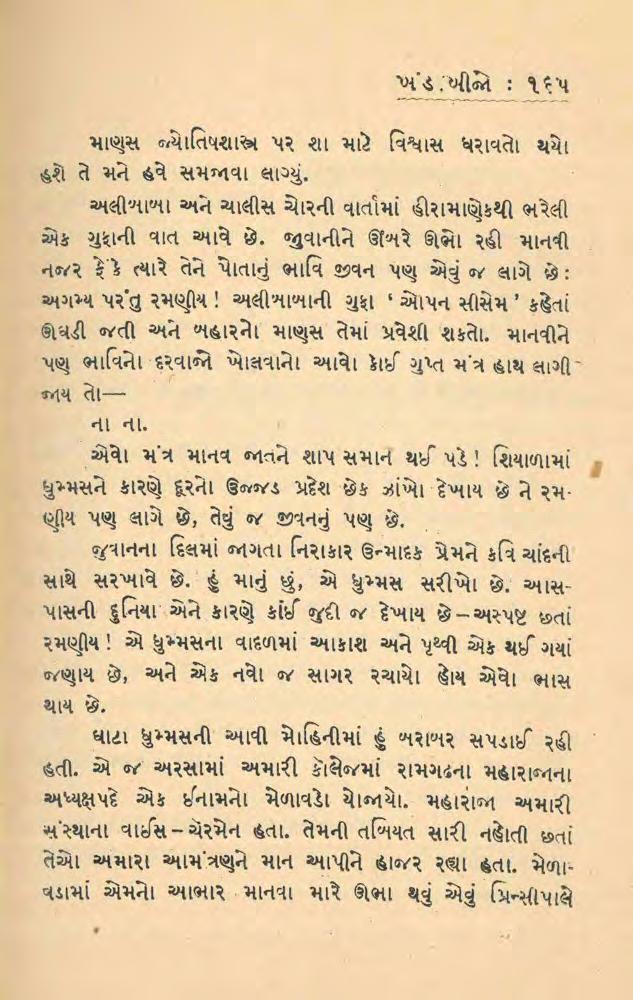 ખંડ બીજો : ૧૬૫
માણસ જ્યોતિષશાસ્ત્ર પર શા માટે વિશ્વાસ ધરાવતો થયો
હશે તે મને હવે સમજાવા લાગ્યું.
અલીબાબા અને ચાલીસ ચોરની વાર્તામાં હીરામાણેકથી ભરેલી
એક ગુફાની વાત આવે છે. જુવાનીને ઊંબરે ઊભો રહી માનવી
નજર ફેંકે ત્યારે તેને પોતાનું ભાવિ જીવન પણ એવું જ લાગે છે :
અગમ્ય પરંતુ રમણીય ! અલીબાબાની ગુફા ‘ ઓપન સીસેમ ’ કહેતાં
ઊઘડી જતી અને બહારનો માણસ તેમાં પ્રવેશી શકતો. માનવીને
પણ ભાવિનો દરવાજો ખોલવાનો આવો કોઈ ગુપ્ત મંત્ર હાથ લાગી
જાય તો—
ના ના.
એવો મંત્ર માનવ જાતને શાપ સમાન થઈ પડે ! શિયાળામાં
ધુમ્મસને કારણે દૂરનો ઉજ્જડ પ્રદેશ છેક ઝાંખો દેખાય છે ને રમ-
ણીય પણ લાગે છે, તેવું જ જીવનનું પણ છે.
જુવાનના દિલમાં જાગતા નિરાકાર ઉન્માદક પ્રેમને કવિ ચાંદની
સાથે સરખાવે છે. હું માનું છું, એ ધુમ્મસ સરીખો છે. આસ-
પાસની દુનિયા એને કારણે કાંઈ જુદી જ દેખાય છે – અસ્પષ્ટ છતાં
રમણીય ! એ ધુમ્મસના વાદળમાં આકાશ અને પૃથ્વી એક થઈ ગયાં
જણાય છે, અને એક નવો જ સાગર રચાયો હોય એવો ભાસ
થાય છે.
ઘાટા ધુમ્મસની આવી મોહિનીમાં હું બરાબર સપડાઈ રહી
હતી. એ જ અરસામાં અમારી કૉલેજમાં રામગઢના મહારાજાના
અધ્યક્ષપદે એક ઈનામનો મેળાવડો યોજાયો. મહારાજા અમારી
સંસ્થાના વાઈસ – ચૅરમેન હતા. તેમની તબિયત સારી નહોતી છતાં
તેઓ અમારા આમંત્રણને માન આપીને હાજર રહ્યા હતા. મેળા-
વડામાં એમનો આભાર માનવા મારે ઊભા થવું એવું પ્રિન્સીપાલે